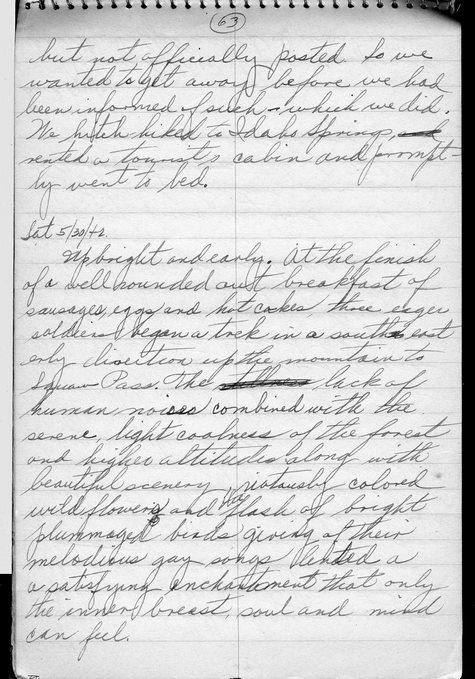 63
but not officially posted. So we
wanted to get away before we had
been informed of such - which we did.
We hitch hiked to Idaho Springs,
rented a tourist's cabin and prompt-
ly went to bed.
Sat 5/30/42.
Up bright and early. At the finish
of a well rounded out breakfast of
sausages, eggs and hot cakes, three eager
soldiers began a trek in a south east
erly direction up the mountain to
Squaw Pass. The stillness lack of
human noises combined with the
serene, light coolness of the forest
and higher altitudes along with
beautiful scenery, riotously colored
wild flowers and a flash of bright
plummaged birds giving of their
melodious gay songs lended a
a satisfying enchantment that only
the inner breast, soul and mind
can feel.